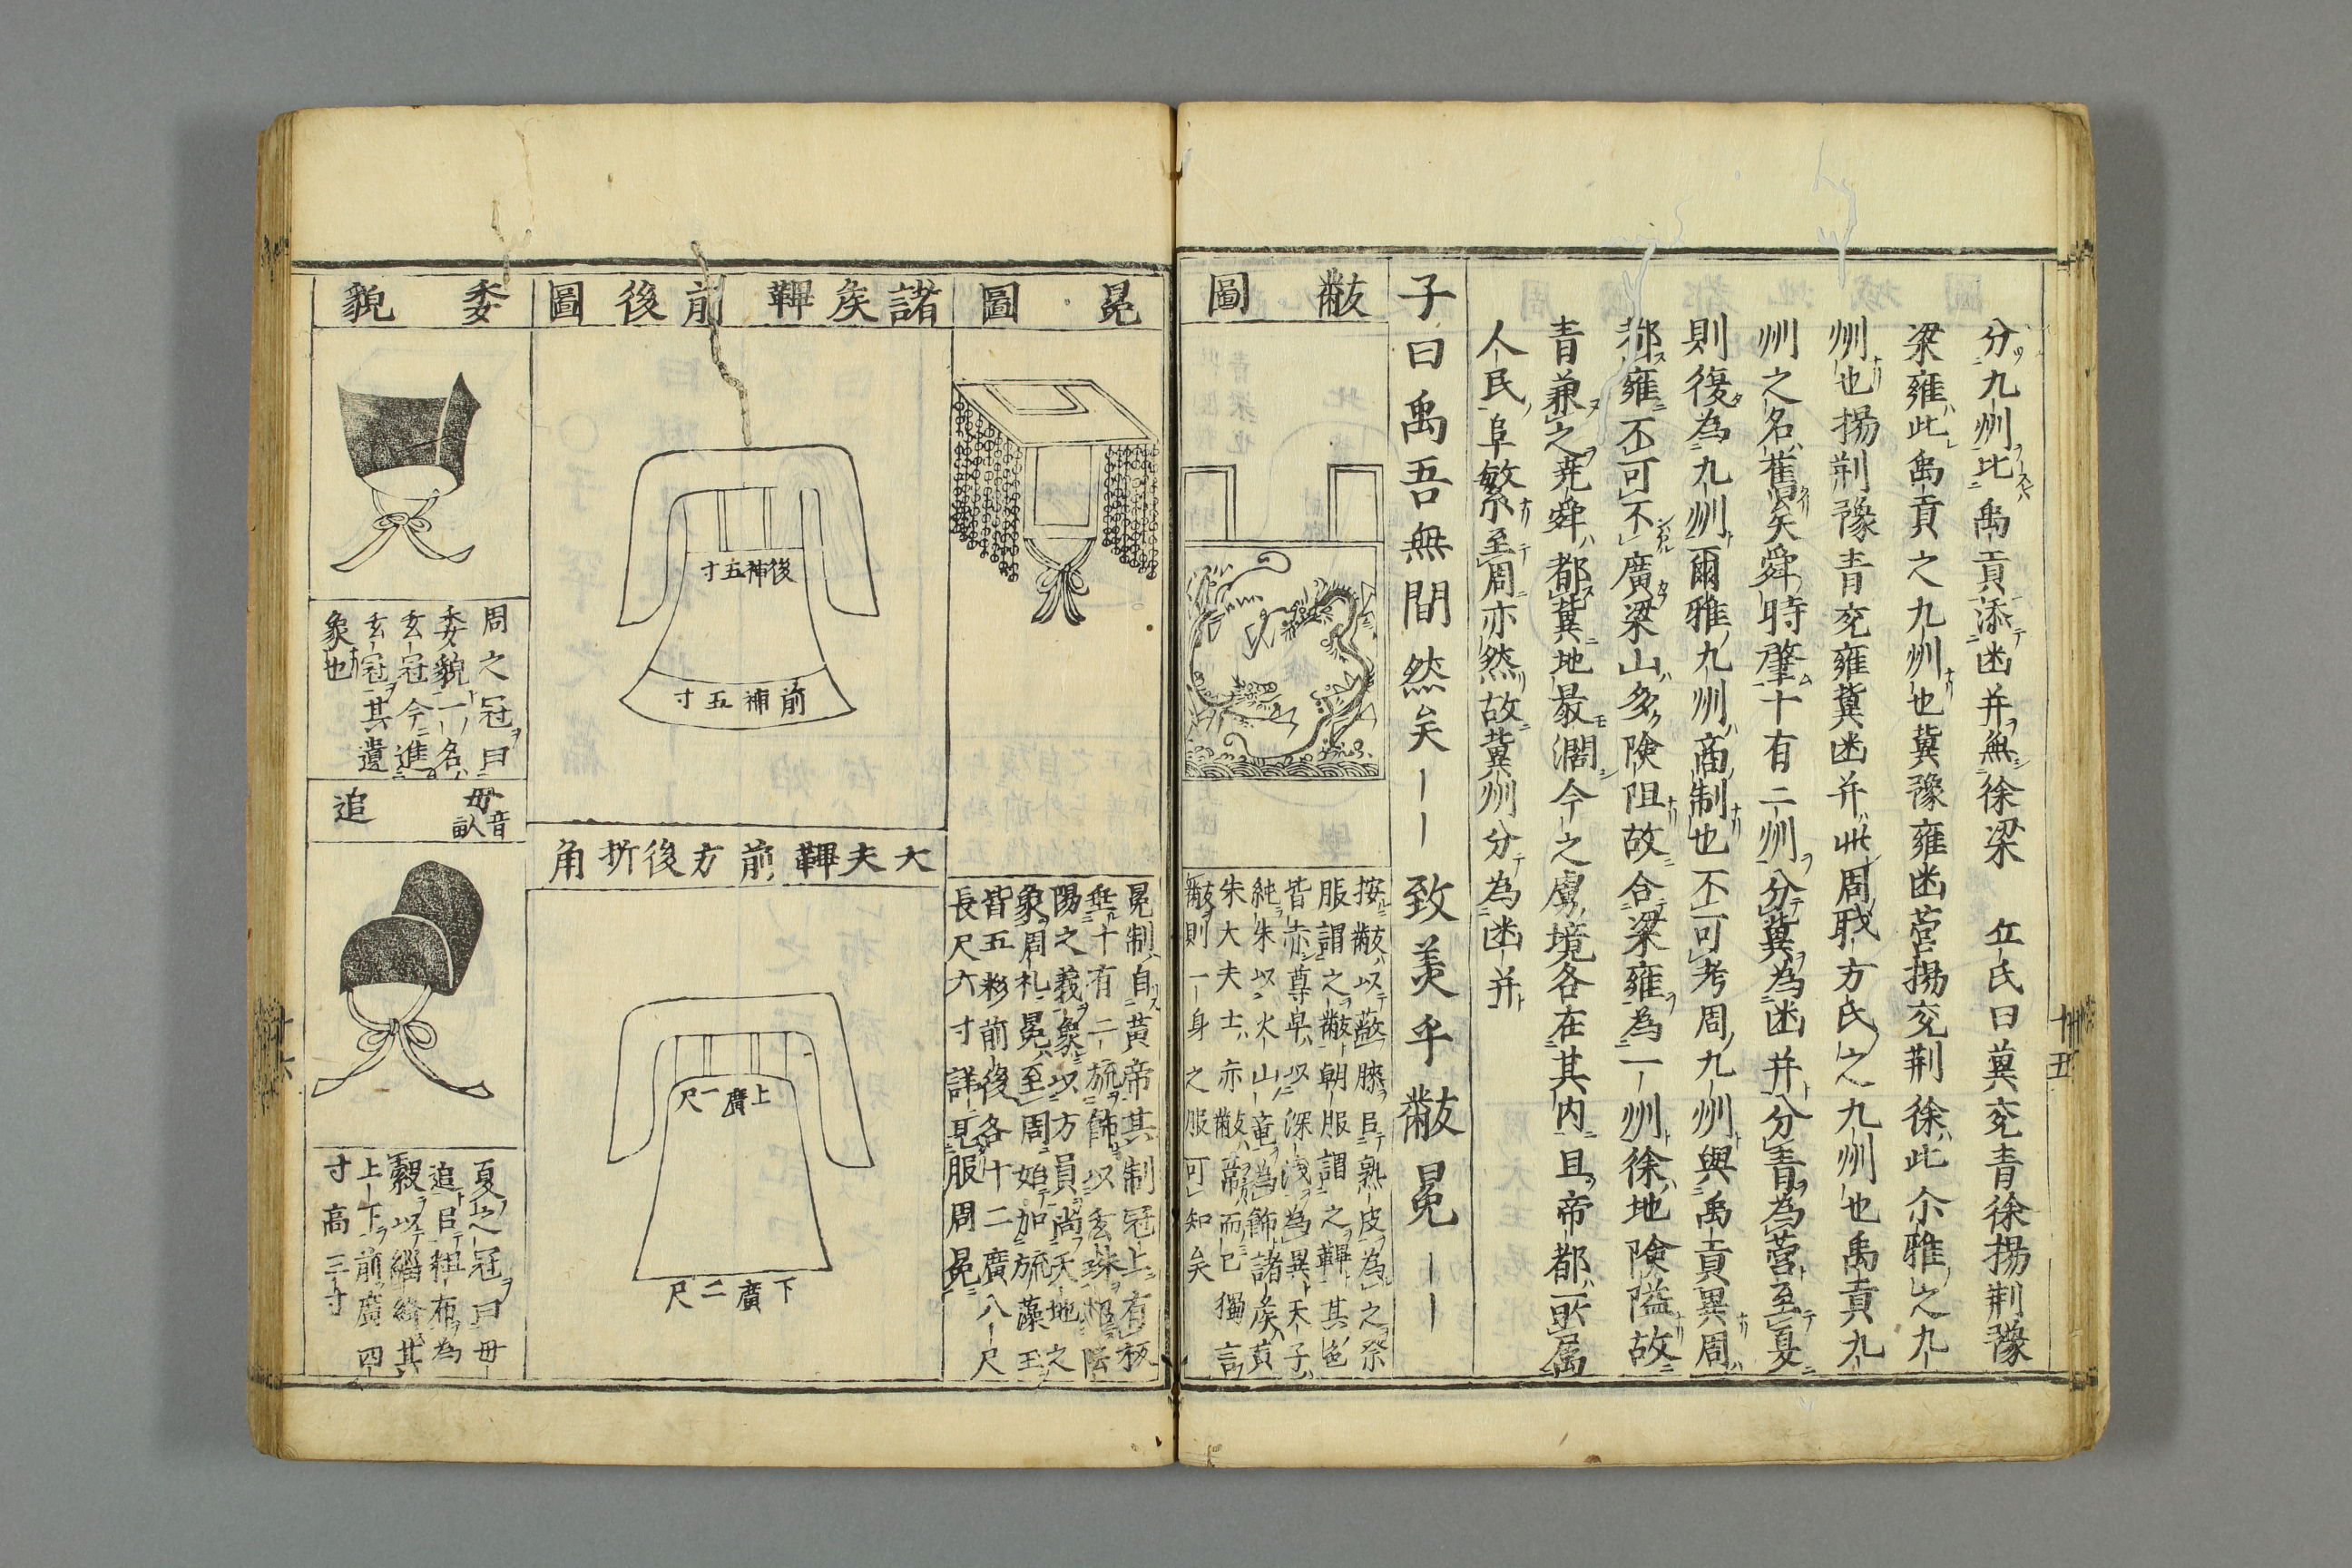 分九州比禹貢添幽并無徐梁 丘氏曰冀兗青徐揚荊豫
梁雍此禹貢之九州也冀豫雍幽營揚兗荊徐此尒雅之九
州也揚荊豫青兗雍冀幽并此周職方氏之九州也禹貢九
州之名舊矣舜時肇十有二州分冀為幽并分青為營至夏
則復為九州爾雅九州商制也不可考周九州與禹貢異周
都雍不可不廣梁山多險阻故合梁雍為一州徐地險隘故
青兼之堯舜都冀地最濶今之虜境各在其内且帝都所屬
人民阜繁至周亦然故冀州分為幽并
子曰禹吾無間然矣｜｜致美乎黻冕｜｜
黻圖
按黻以蔽膝㠯熟皮為之祭
服謂之黻朝服謂之韠其色
皆亦尊卑以深浅為異天子
純朱以火山竜為飾諸矦黄
朱大夫士亦黻裳而已獨言
黻則一身之服可知矣
十五
冕圖
冕制自黄帝其制冠上有板
垂十有二旒飾以玄珠
陽之義象以方員尚天地之
象周礼冕至周始加旒藻玉
皆五彩前後各十二廣八尺
長尺六寸詳見服周冕
諸矦韠前後圖
後補五寸
前補五寸
大夫韠前方後折角
上廣一尺
下廣二尺
委貌
周之冠曰
委貌一名
玄冠今進
玄冠其遺
象也
毋音畝追
夏之冠曰毋
追㠯粗布為
縠以緇縫其
上下前廣四
寸高三寸
十六